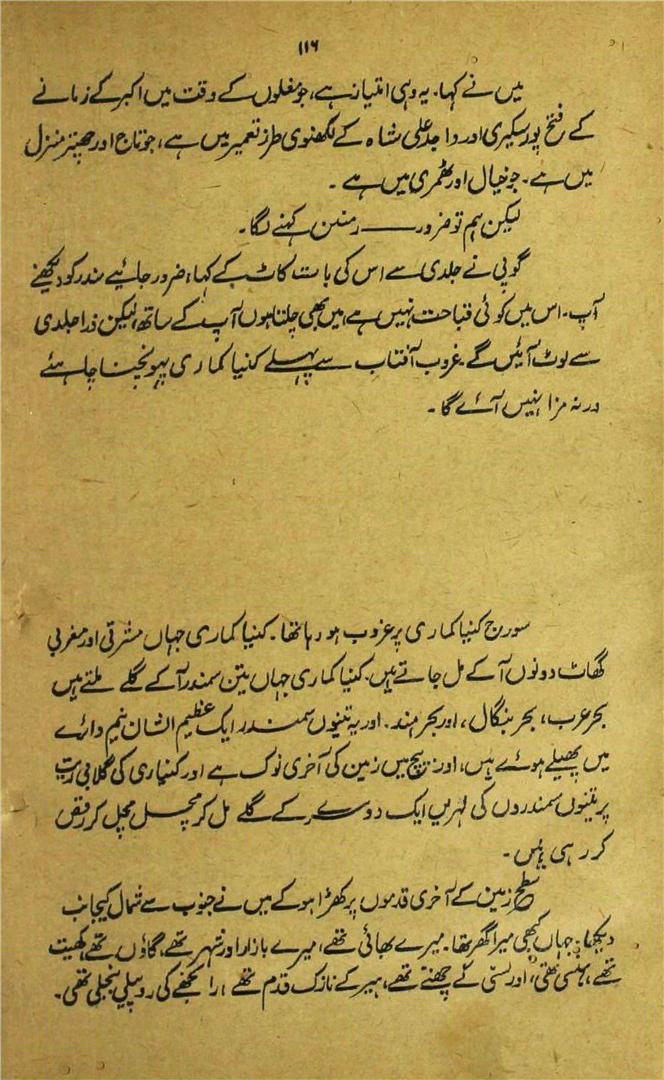 ۱۱۶
میں نے کہا۔ یہ وہی امتیاز ہے، جو مغلوں کے وقت میں اکبر کے زمانے
کے فتح پور سیکری اور واجد علی شاہ کے لکھنوی طرز تعمیر میں ہے، جو تاج اور چھتر منزل
میں ہے۔ جو خیال اور ٹھمری میں ہے۔
لیکن ہم تو ضرور —— رمنین کہنے لگا۔
گوپی نے جلدی سے اس کی بات کاٹ کے کہا، ضرور جائیے مندر کو دیکھنے
آپ۔ اس میں کوئی قباحت نہیں ہے میں بھی چلتا ہوں آپ کے ساتھ، لیکن ذرا جلدی
سے لوٹ آئیں گے۔ غروب آفتاب سے پہلے کنیا کماری پہونچنا چاہئے
ورنہ مزا نہیں آئے گا۔
سورج کنیا کماری پر غروب ہو رہا تھا۔ کنیا کماری جہاں مشرقی اور مغربی
گھاٹ دونوں آ کے مل جاتے ہیں۔ کنیا کماری جہاں تین سمندر آ کے گلے ملتے ہیں
بحر عرب، بحر بنگال، اور بحر ہند۔ اور یہ تینوں سمندر ایک عظیم الشان نیم دائرے
میں پھیلے ہوئے ہیں، اور بیچ میں زمین کی آخری نوک ہے اور کنیاری کی گلابی ریت
پر تینوں سمندروں کی لہریں ایک دوسرے کے گلے مل کر مچل مچل کر رقص
کر رہی ہیں۔
سطح زمین کے آخری قدموں پر کھڑا ہو کے میں نے جنوب سے شمال کیجانب
دیکھا۔ جہاں کبھی میرا گھر تھا۔ میرے بھائی تھے، میرے بازار اور شہر تھے، گاؤں تھے، کھیت
تھے، ہنسی تھی، اور لسی کے چھنے تھے، ہیر کے نازک قدم تھے، رانجھے کی روپہلی بنجلی تھی۔